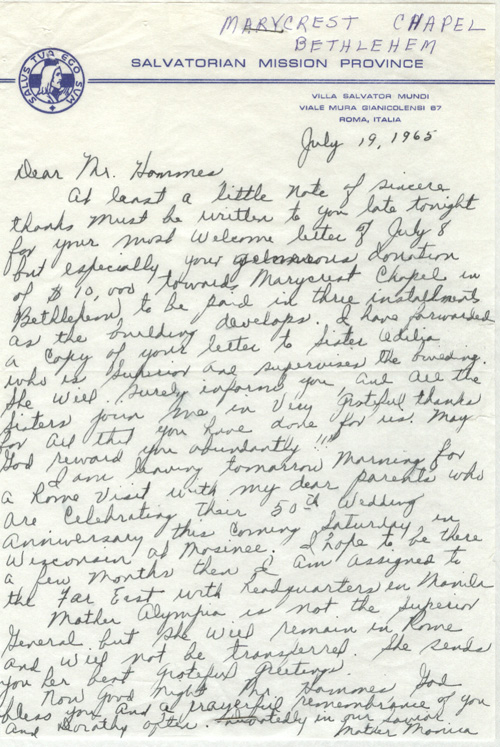 MARYCREST CHAPEL
BETHLEHEM
SALVATORIAN MISSION PROVINCE
SALUS TUA EGO SUM
VILLA SALVATOR MUNDI
VIALE MURA GIANICOLENSI 67
ROMA, ITALIA
July 19, 1965
Dear Mr. Hommes
At least a little note of sincere
thanks must be written to you late tonight
for your most welcome letter of July 8
but especially your generous donation
of $10,000 towards Marycrest Chapel in
Bethlehem, to be paid in three installments
as the building develops. I have forwarded
a copy of your letter to Sister Adelja
who is Superior and supervises the building.
She will surely inform you, and all the
Sisters join me in very grateful thanks
for all that you have done for us. May
God reward you abundantly!!!
I am leaving tomorrow morning for
a home visit with my dear parents who
are celebrating their 50th wedding
anniversary this coming Saturday in
Wisconsin at Mosinee. I hope to be there
a few months then I am assigned to
the Far East with headquarters in Manila
Mother Olympia is not the Superior
General but she will remain in Rome
and will not be transferred. She sends
you her best grateful greetings.
Now good night Mr. Hommes God
bless you and a prayerful remembrance of you
and Dorothy often. Devotedly in our Savior
Mother Monica